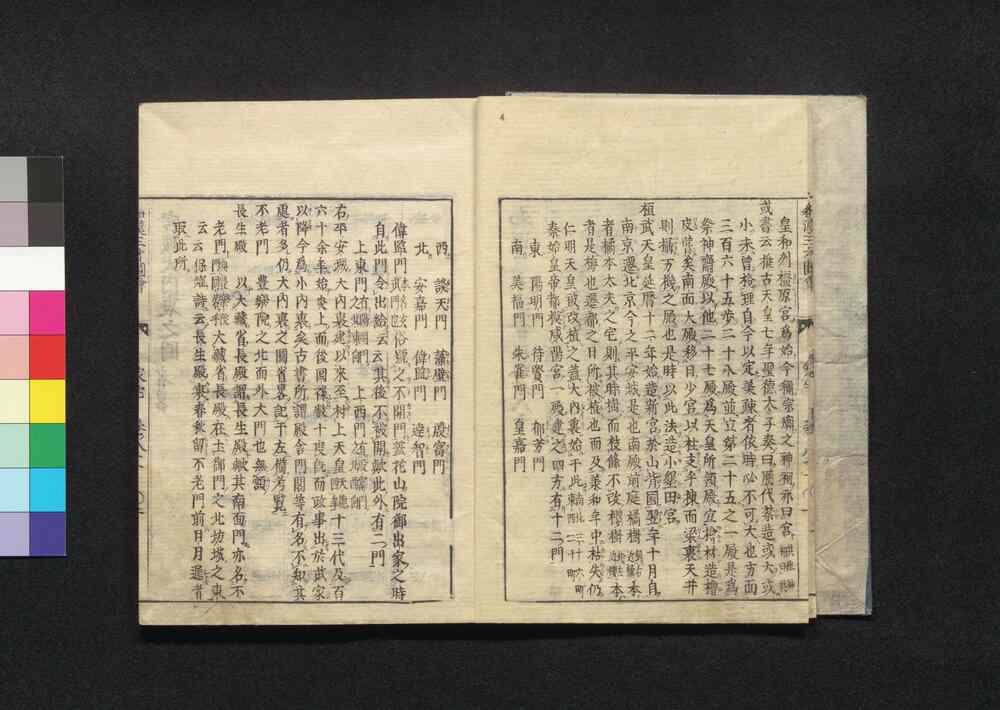 皇和則橿原宮爲始今稱宗廟之神祠亦曰宮
或書云推古天皇七年聖德太子奏曰歷代禁造或大或
小未曾格理自今以定美疎看依時必不可大也方面
三百六十五歩二十八殿並立第二十五之一殿是爲
祭神齋殿以他二十七殿爲天皇所領殿宜檜材造檜
皮葺矣南面大殿移日少宮以柱支乎揀而梁裏天井
則攝万機之殿也是時以此法造小墾田宮
桓武天皇延曆十二年始造新宮於山背國翌年十月自
南京遷北京今之平安城是也南殿前庭橘樹
者橘本太夫之宅則其時橘而枝條不改櫻樹
者是梅也遷都之日所被植也而及承和年中枯失仍
仁明天皇被改植之蓋大內裏始于此
秦始皇帝都擬咸陽宮殿建之四方有十二門
東 陽明門 待賢門 郁芳門
南 美福門 朱雀門 皇嘉門
西 談天門 藻壁門 殷富門
北 安嘉門 偉鑒門 達智門
偉鑒門 不開門蓋花山院御出家之時
自此門令出給云云其後不被開歟此外有二門
上東門 上西門
右平安城大內裏建以來至村上天皇 十三代及百
六十余年始炎上而後囘祿數十度既而政事出於武家
以降今爲小內裏矣古書所謂殿舍門閣等有名不知其
處者多仍大內裏之圖省畧記于左備考異
不老門 豐樂院之北而外大門也無額
長生殿 以大藏省長殿謂長生殿歟其南面門亦名不
老門 大藏省長殿在土御門之北坊城之東
云云保胤詩云長生殿裏春秋留不老門前日月遲者
取此所
4